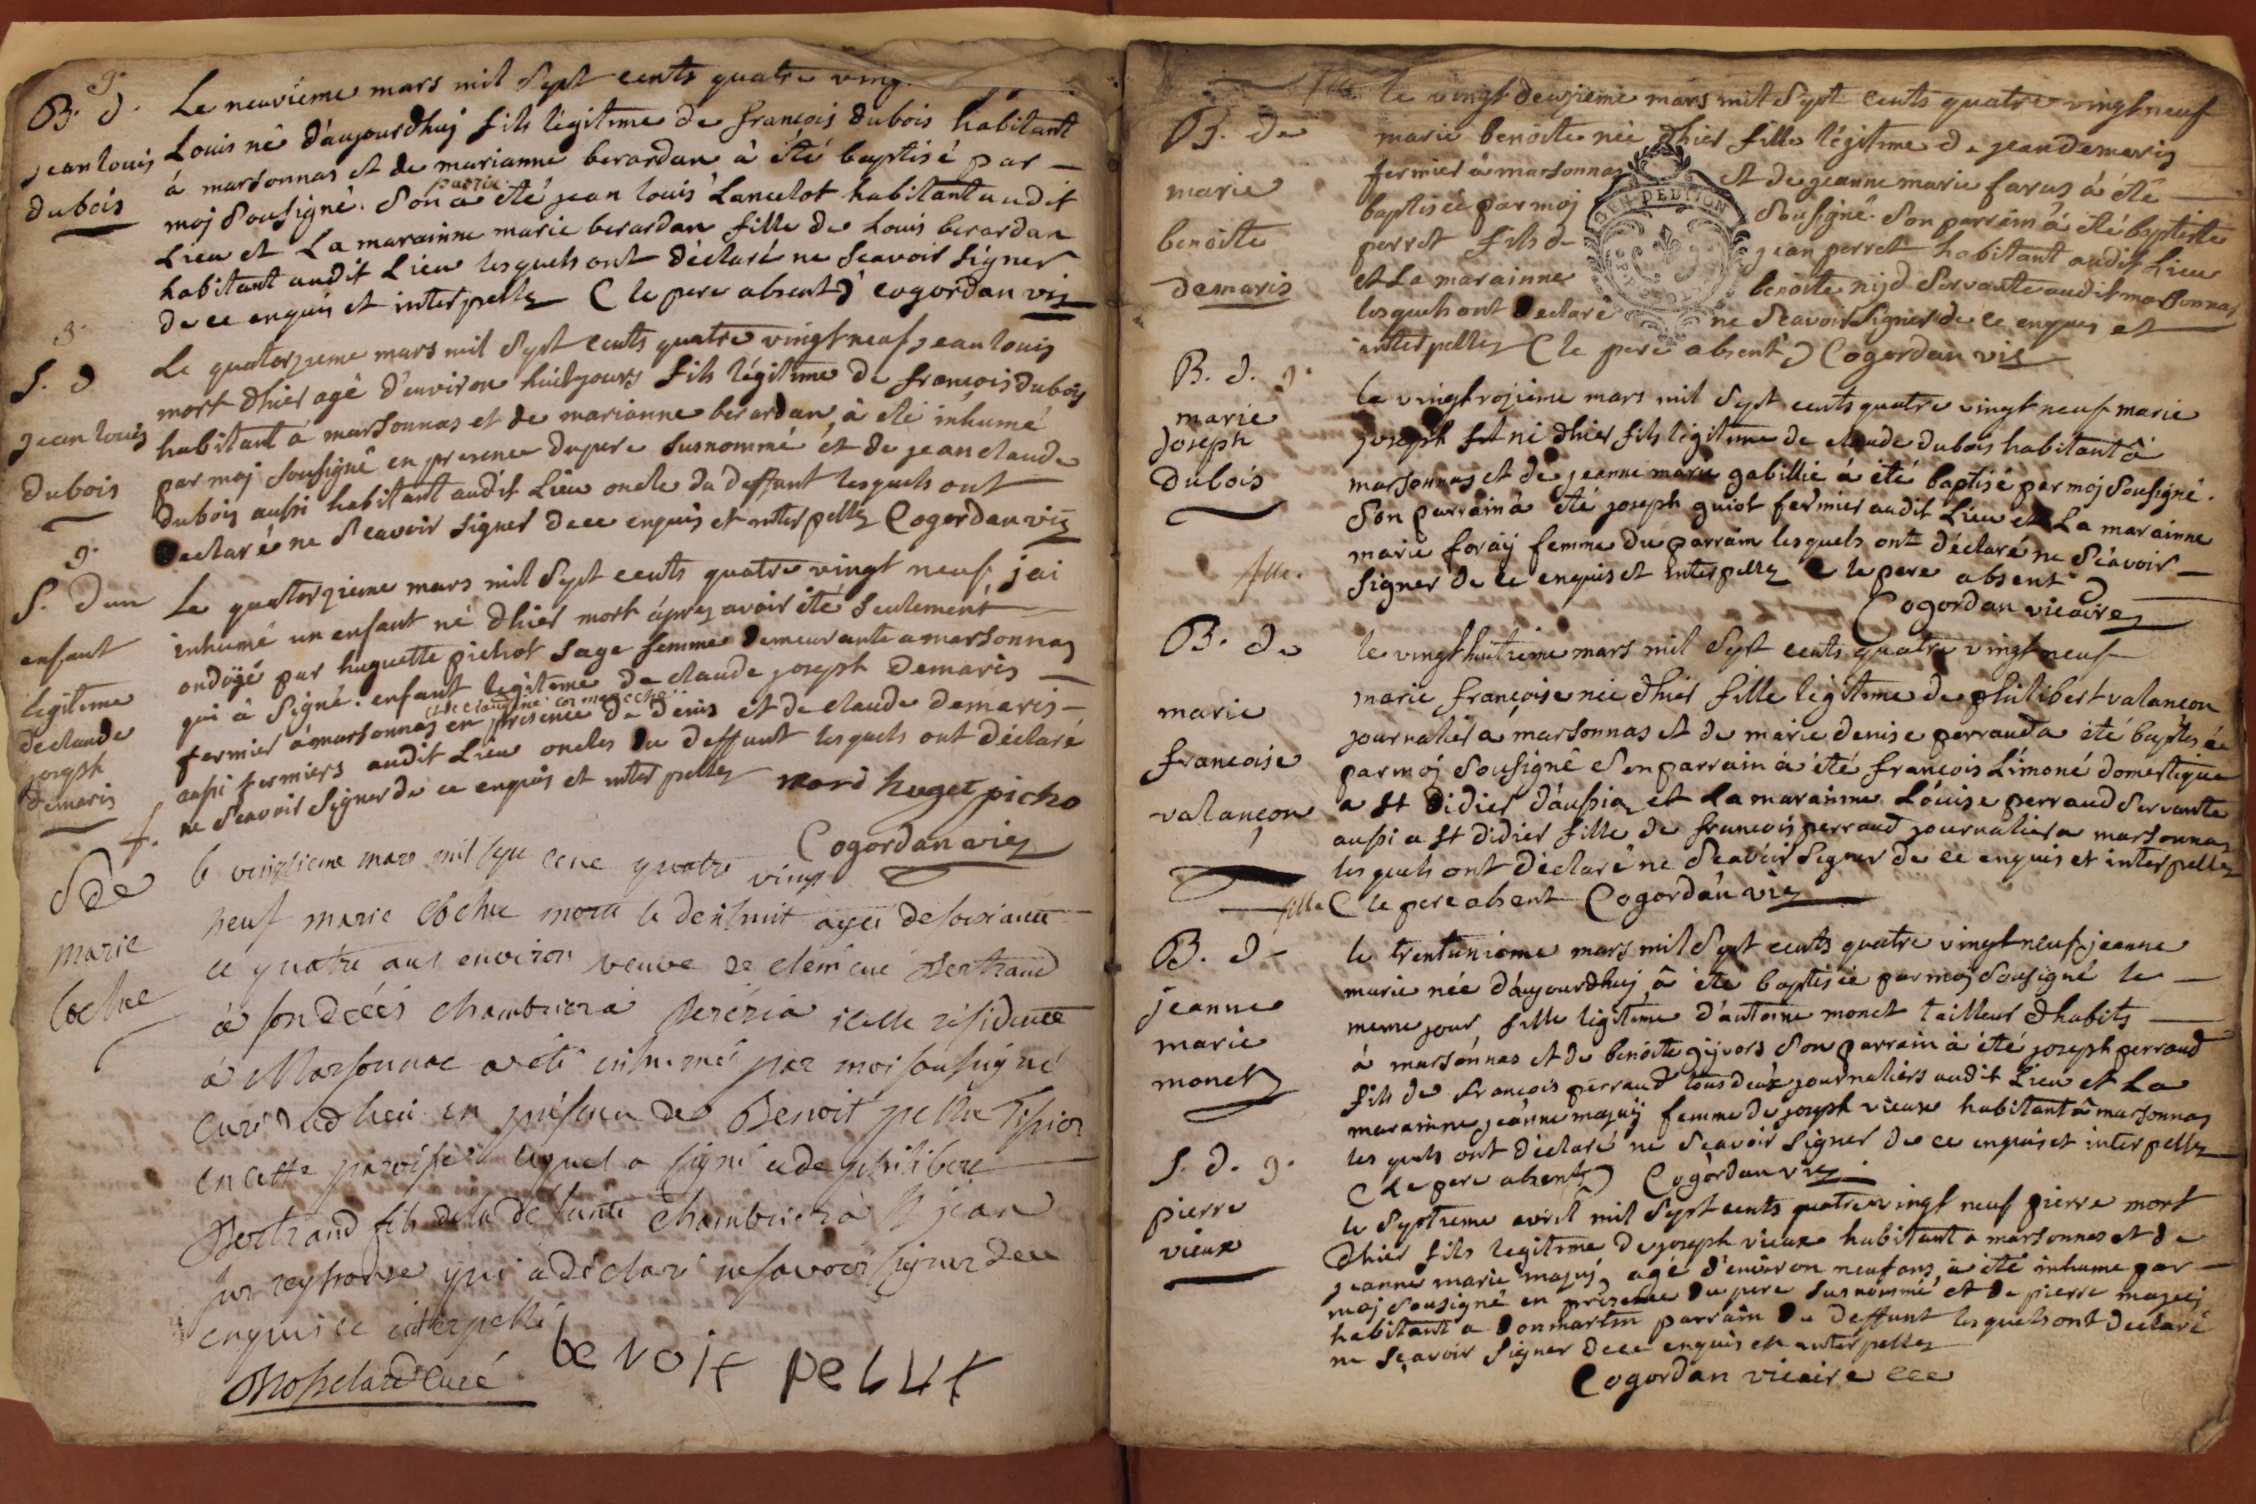 g.
B. d.
jean louis
dubois
Le neuvieme mars mil Sept cents quatre ving
Louis né d'aujourdhuj fils légitime de françois dubois habitant
á marsonnas et de marianne berardan à été baptisé par
moj Sousigné. Son parrin a été jean louis Lancelot habitant audit
Lieu et La marainne marie berardan fille de Louis berardan
habitant audit Lieu lesquels ont déclaré ne Scavoir Signer
de ce enquis et interpellez ( le pere absent ) cogordan vic
g.
S. d
jean louis
dubois
Le quatorzieme mars mil Sept cents quatre vingt neuf jean louis
mort dhier agé d'environ huit jours fils légitime de françois dubois
habitant á marsonnas et de marianne berardan, à été inhumé
par moj Sousigné en presence du pere Susnommé et de jean claude
dubois aussi habitant audit Lieu oncle du deffunt lesquels ont
declaré ne Scavoir Signer de ce enquis et interpellez Cogordan vic
g.
S. dun
enfant
legitime
de claude
joseph
demaris
Le quatorzieme mars mil Sept cents quatre vingt neuf j'ai
inhumé un enfant né dhier mort áprez avoir été Seulement
ondoÿé par huguette pichot Sage femme demeurante a marsonnas
qui à Signé. enfant legitime de claude joseph demaris
fermier á marsonnas en presence de denis et de claude demaris
aussi fermiers audit Lieu oncles du deffunt lesquels ont déclaré
ne Scavoir Signer de ce enquis et interpellez mari huget picho
Cogordan vic
f.
S de
marie
cochue
le vingtieme mars mil sept cent quatre vingt
neuf marie cochue morte le dixhuit agée de soixante
et quatre ans environ veuve de clément Bertrand
à son décés chambrier à perézia icelle résidente
à Marsonnas a été inhumé par moi soussigné
curé dud lieu en présence de Benoit pellu tissier
en cette paroisse lequel a signé et de philibert
Bertrand fils de la défunte chambrier à St jean
sur reyssouse qui a déclaré ne savoir signer de ce
enquis et interpellé
curé benoit peLLut
fille
B. de
marie
benoite
demaris
le vingt deuzieme mars mil Sept cents quatre vingt neuf
marie benoite née dhier fille légitime de jean demaris
fermier á marsonnas et de jeanne marie farus á été
baptisée par moj Sousigné. Son parrain à été baptiste
perret fils de jean perret habitant audit Lieu
et La marainne benoite nijd Servante audit marsonnas
lesquels ont declaré ne Scavoir Signer de ce enquis et
interpellez ( le pere absent ) Cogordan vic
B. d. g.
marie
joseph
dubois
le vingt trojzieme mars mil Sept cents quatre vingt neuf marie
joseph né dhier fils legitime de claude dubois habitant à
marsonnas et de jeanne marie gabillié à été baptisé par moj Sousigné.
Son parrain á été joseph guiot fermier audit Lieu et La marainne
marie foraij femme du parrain lesquels ont déclaré ne Scavoir
Signer de ce enquis et interpellez ( le pere absent )
Cogordan vicaire
fille.
B. de
marie
francoise
valançon
le vingt huitieme mars mil Sept cents quatre vingt neuf
marie françoise née dhier fille legitime de philibert valançon
journalier á marsonnas et de marie denise perraud a été baptisée
par moj Sousigné Son parrain à été francois Limoné domestique
a St didier d'aussia et La marainne Louise perraud Servante
aussi a St didier fille de francois perraud journalier a marsonnas
lesquels ont déclaré ne Scavoir Signer de ce enquis et interpellez
( le pere absent Cogordan vic
fille
B. d
jeanne
marie
monet
le trentunieme mars mil Sept cents quatre vingt neuf jeanne
marie née d'aujourdhuj à été baptisée par moj Sousigné le
meme jour fille legitime d'antoine monet tailleur dhabits
à marsonnas et de benoite gijvors Son parrain à été joseph perraud
fils de francois perraud tous deux journaliers audit Lieu et La
marainne jeanne majuij femme de joseph vieux habitant à marsonnas
lesquels ont déclaré ne Scavoir Signer de ce enquis et interpellez
( Le pere absent ) Cogordan vic
S. d. g.
pierre
vieux
le Septieme avril mil Sept cents quatre vingt neuf pierre mort
dhier fils legitime de joseph vieux habitant a marsonnas et de
jeanne marie majuj, agé d'environ neuf ans, à été inhume par
moj Sousigné en présence du pere Susnommé et de pierre majuij
habitant a donmartin parrain du deffunt lesquels ont declaré
ne Scavoir Signer de ce enquis et interpellez
Cogordan vicaire